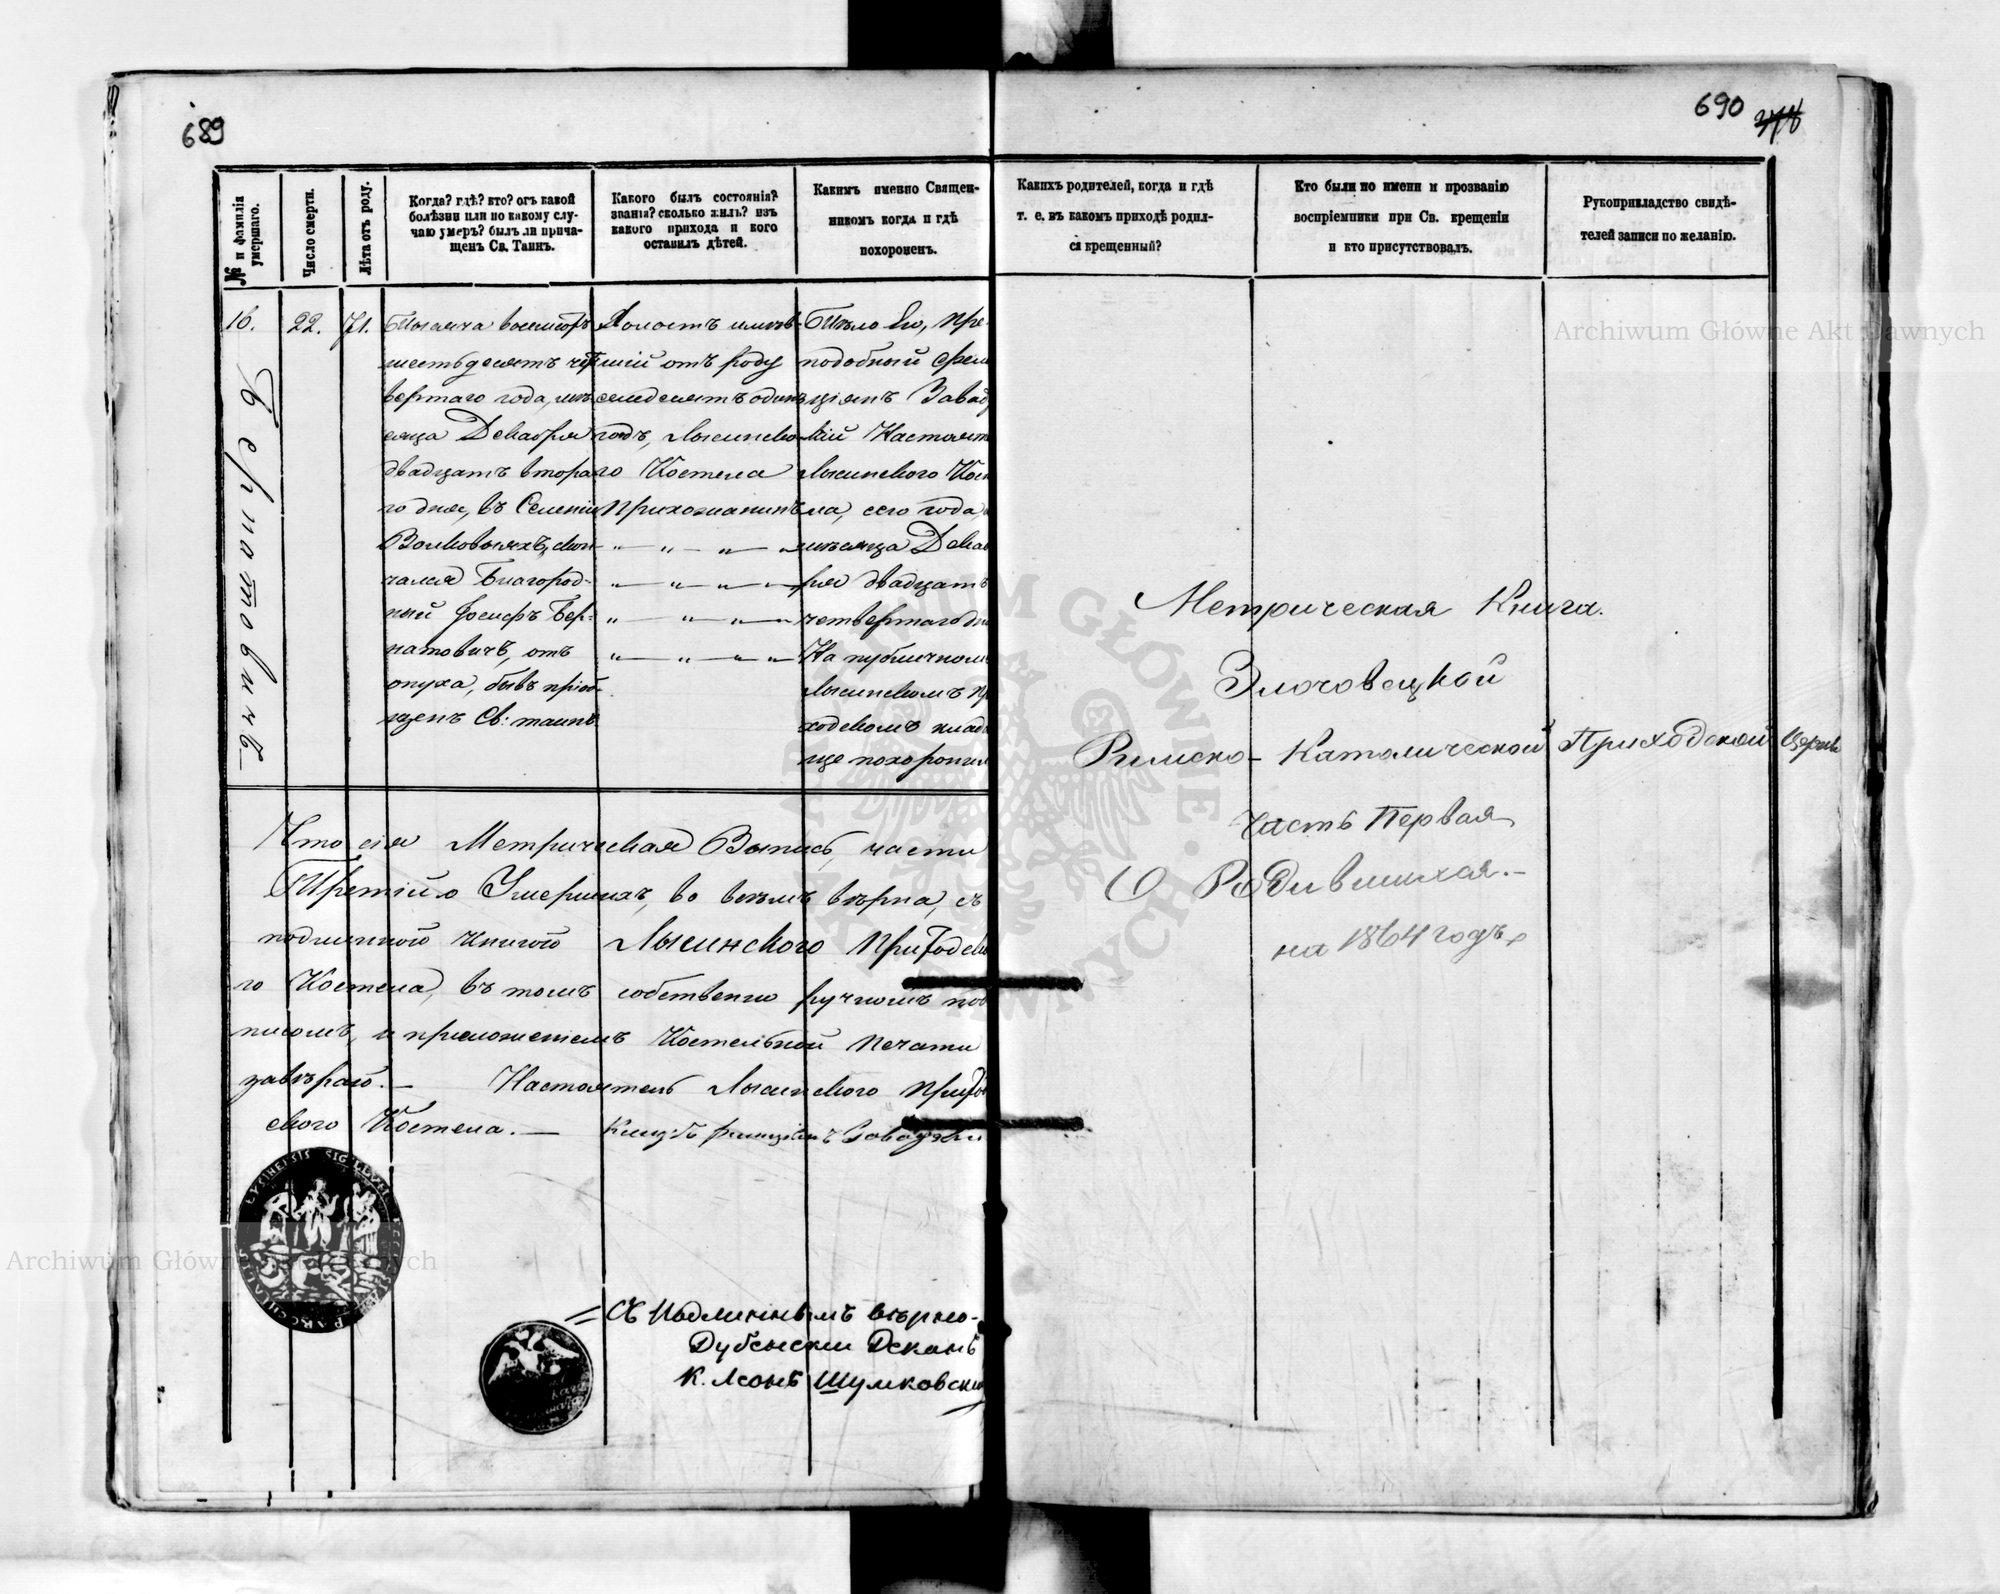 689
№ и фамилія умершаго.
Число смерти.
Лѣта отъ роду.
Когда? гдѣ? кто? отъ какой
болѣзни или по какому слу-
чаю умеръ? былъ ли прича-
щенъ Св. Таинъ.
Какого былъ состоянія?
званія? сколько жилъ? изъ
какого прихода и кого
оставилъ дѣтей.
Какимъ именно Священ-
никомъ когда и гдѣ
похороненъ.
16.
Бернатовичъ
22.
71.
Тысяча восемсотъ
шестьдесятъ чет
вертаго года, мѣ
сяца Декабря
двадцать втора
го дня, въ Селеніи
Волковыяхъ, скон-
чался Благород-
ный Іосифъ Бер-
натовичъ, отъ
опуха, бывъ пріоб-
щенъ Св: таинъ
Холостъ имѣв-
шій отъ роду
семдесятъ одинъ
годъ, Лысинско
го Костела
Прихожанинъ
Тѣло Его, Пре-
подобный Фели
ціянъ Завад
скій Настоят
Лысинского Кос
ла, сего года,
мѣсяца Декаб
ря двадцать
четвертаго дня
На публичном
Лысинскомъ пр
ходскомъ кладб
ще похоронил
Что сія Метрическая Выпись, части
Третій о Умершихъ, во всемъ вѣрна, съ
подлинной книгой Лысинского Приходск
го Костела, въ томъ собственно ручномъ под
писомъ, и приложеніемъ Костельной Печати
завѣряю.— Настоятель Лысинского Прихо
ского Костела.— Ксендзъ Фелиціянъ Завадскі
LYSINENSIS SIGILLUM
PAROCHIALIS
Съ Подлиннымъ вѣрно-
Дубенскій Деканъ
К. Леонъ Шумковскій
690
378
Какихъ родителей, когда и гдѣ
т. е. въ какомъ приходѣ родил-
ся крещенный?
Кто были по имени и прозванію
воспріемники при Св. крещеніи
и кто присутствовалъ.
Рукоприкладство свидѣ-
телей записи по желанію.
Метрическая Книга.
Злочовецкой
Римско-Католической Приходской Церкви
Часть Первая
О Родившихся.-
на 1864 годъ
Archiwum Główne Akt Dawnych
Archiwum Główne Akt Dawnych